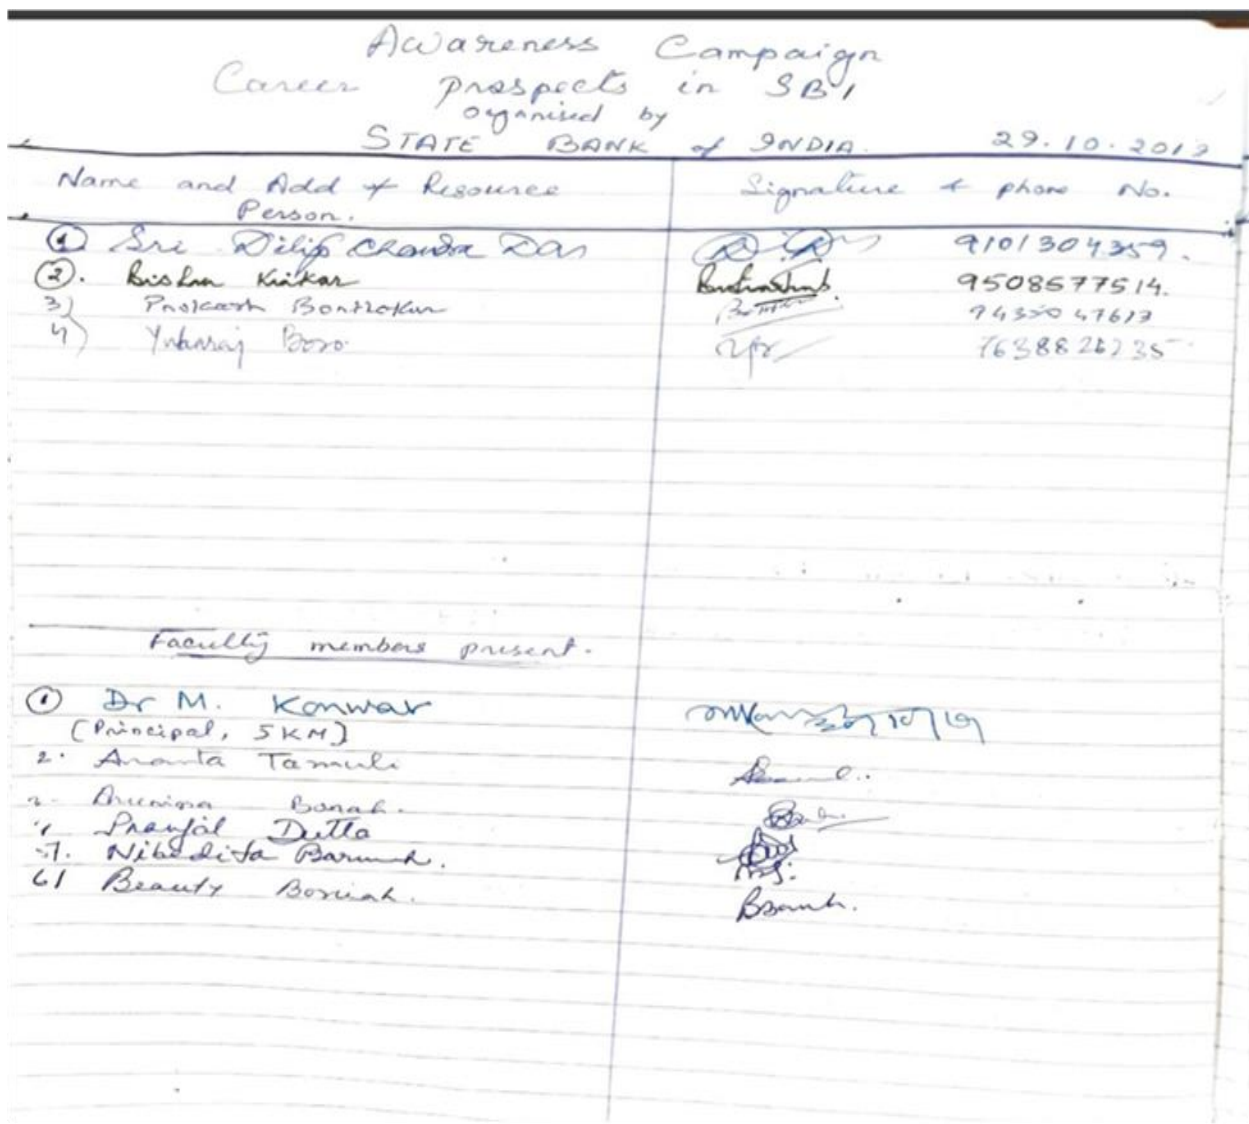 Awareness Campaign
Career prospects in SBI
organised by
STATE BANK of INDIA. 29.10.2019
Name and Add of Resource Person.
Signature & phone No.
① Sri Dilip Chandra Das 9101304359.
②. Bishnu 9508577514.
3)
4) Yubaraj Boro. 7638826235
Faculty members present.
① Dr M. Konwar
(Principal, SKM)
2. Ananta Tamuli
Borah.
Pranjal Dutta
Nibedita Baruah.
6) Beauty Boruah.